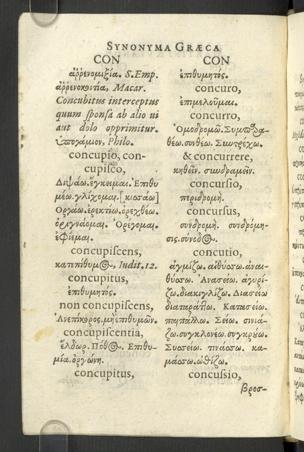 SYNONYMA GRÆCA
CON
ἀῤῥενομιξία. S. Emp.
ἀῤῥενοκοιτία, Macar.
Concubitus interceptus
quum sponsa ab alio ui
aut dolo opprimitur.
Ὑπογάμιον, Philo.
concupio, con-
cupisco,
Διψάω. ἔγκειμαι. Ἐπιθυ
μέω. γλίχομαι. [κισσάω]
Ὀργάω. ἐρεκτιω. ὀρεχθέω.
ὀριγνάομαι. Ὀρέγομαι.
ἐφίεμαι.
concupiscens,
κατεπιθυμ Indit. 12.
concupitus,
ἐπιθυμητός.
non concupiscens,
Ἀνεπίφορος. μὴ ἐπιθυμῶν.
concupiscentia,
Ἔλδωρ. Πόθος. Ἐπιθυ-
μία. ὀργώνη.
concupitus,
CON
ἐπιθυμητός.
concuro,
ἐπιμελοῦμαι.
concurro,
Ὁμοδρομῶ. Συμπαρα-
θέω. συνθέω. Συντρέχω.
& concurrere,
συνδραμεῖν.
concursio,
περιδρομή.
concursus,
συνδρομή. συνδρόμη-
σις. σύνοδος.
concutio,
αἰθύσσω. ἀναι-
θύσσω. Ἀνασείω.
διακιγκλίζω. Διασείω
Κατασείω.
Σείω. σινιά-
ζω. συγκλονέω. συγκρούω.
Συσσείω. τινάσσω.
ὠθίζω.
concussio,
βρασ-